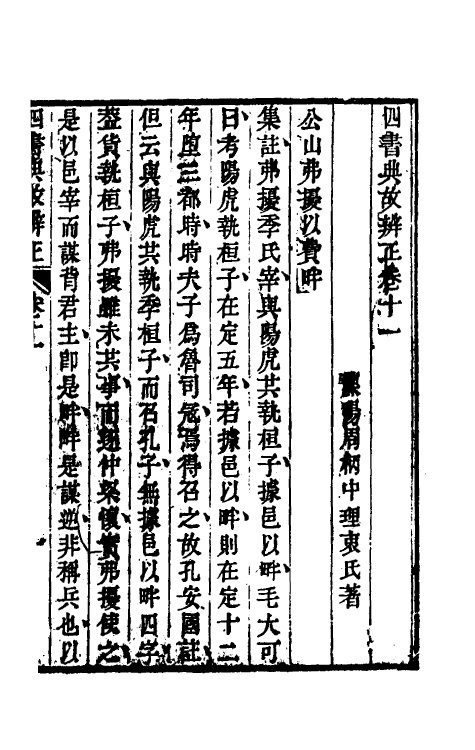 四書典故辨正卷十一
溧陽周柄中理衷氏著
公山弗擾以費畔
集註弗擾季氏宰與陽虎共執桓子據邑以畔毛大可
曰考陽虎執桓子在定五年若據邑以畔則在定十二
年墮三都時時夫子為魯司寇焉得召之故孔安國註
但云與陽虎共執季桓子而召孔子無據邑以畔四字
蓋貨執桓子弗擾雖未共事而逐仲梁懷實弗擾使之
是以邑宰而謀背君主卽是畔畔是謀逆非稱兵也以
四書典故辨正 卷十一